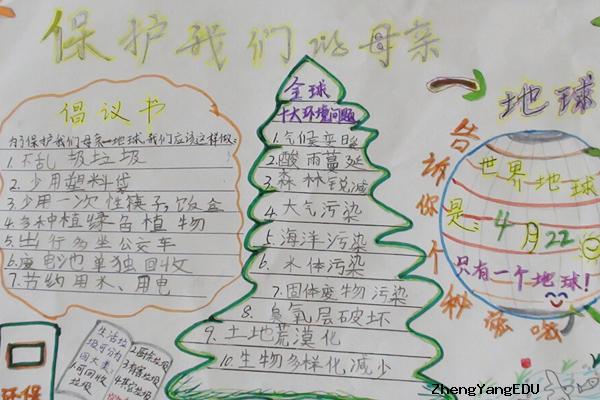 保护我们的母亲
地球
倡议书
为了保护我们母亲—地球,我们应该这样做:
1.不乱扔垃圾
2.少用塑料袋
3.少用一次性筷子,饭盒
4.多种植绿色植物
5.出行多坐公交车
6.废电池单独回收
7.节约用水、用电
全球
十大环境问题
1.气候变暖
2.酸雨蔓延
3.森林锐减
4.大气污染
5.海洋污染
6.水体污染
7.固体废物污染
8.臭氧层破坏
9.土地荒漠化
10.生物多样化减少
告诉你个秘密哦
世界地球
是:4月22
只有一个地球!
环保
生活垃
圾可分为
四大类:
1.可回收
垃圾
2.厨余垃圾
3.有害垃圾
4.其它垃圾
ZhengYangEDU